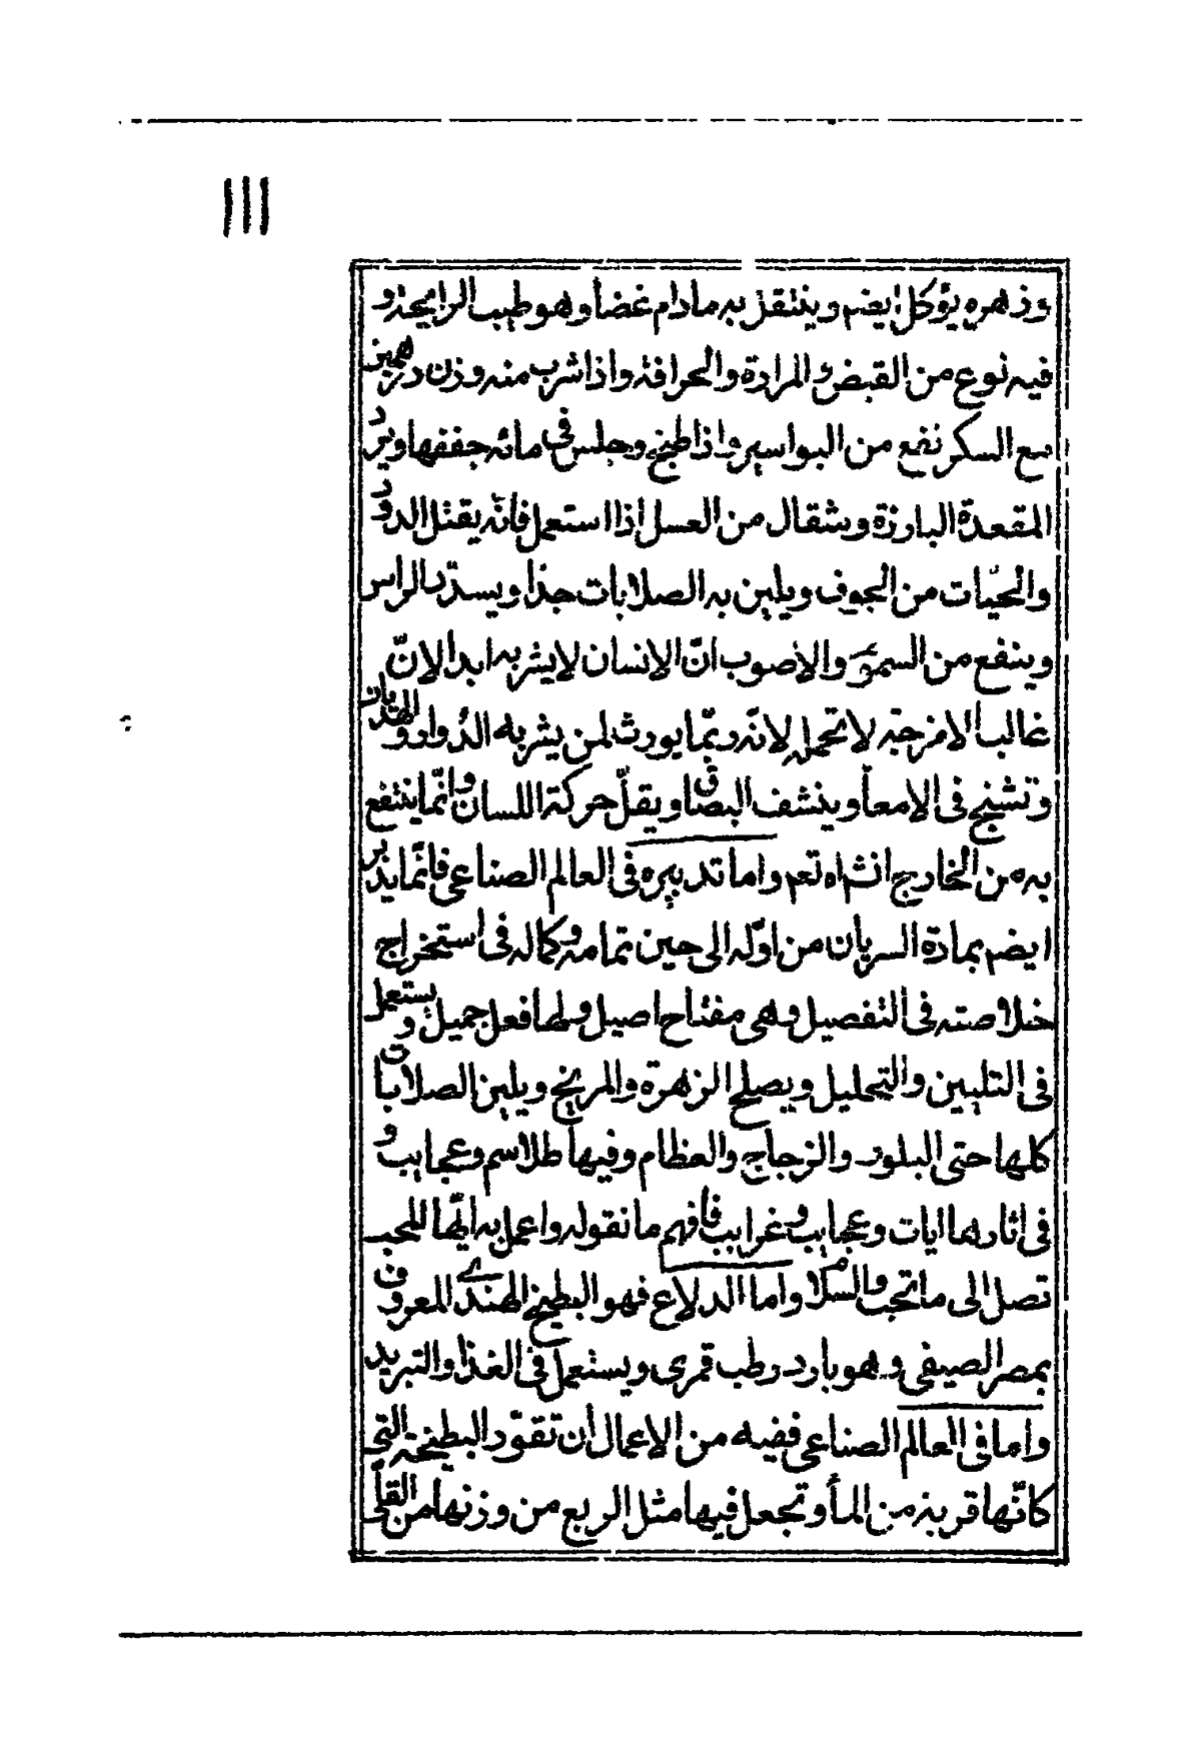 ١١١
وزهره يؤكل ايضم وينتقل به مادام غضا وهو طيب الرايحة و
فيه نوع من القبض والمرارة والحرافة واذا شرب منه وزن درهمين
مع السكر نفع من البواسير واذا طبخ وجلس في مائه جففها ويرد
المقعدة البارزة ومثقال من العسل اذا استعمل فانّه يقتل الدود
والحيّات من الجوف ويلين به الصلابات جدا ويسدّد الراس
وينفع من السموم والاصوب انّ الانسان لا يشربه ابدا لانّ
غالب الامزجة لا تحمله لانّه ربّما يورث لمن يشربه الدّوار والهذيان
وتشنج في الامعا وينشف البصاق ويقلّ حركة اللسان وانّما ينتفع
به من الخارج انشاه تعم واما تدبيره في العالم الصناعي فانّما يدبر
ايضم بمادة السريان من اوّله الى حين تمامه وكماله في استخراج
خلاصته في التفصيل وهي مفتاح اصيل ولها فعل جميل ويستعمل
في التليين والتحليل ويصلح الزهرة والمريخ ويلين الصلابات
كلها حتى البلور والزجاج والعظام وفيها طلاسم وعجايب و
في اثارها ايات وعجايب وغرايب فافهم ما نقوله واعمل به ايّها المحب
تصل الى ما تحب والسلام واما الدلاع فهو البطيخ الهندي المعروف
بمصر الصيفي وهو بارد رطب قمري ويستعمل في الغذا والتبريد
واما في العالم الصناعي ففيه من الاعمال أن تقوّر البطيخة التي
كانّها قربة من المأ وتجعل فيها مثل الربع من وزنها من القلي